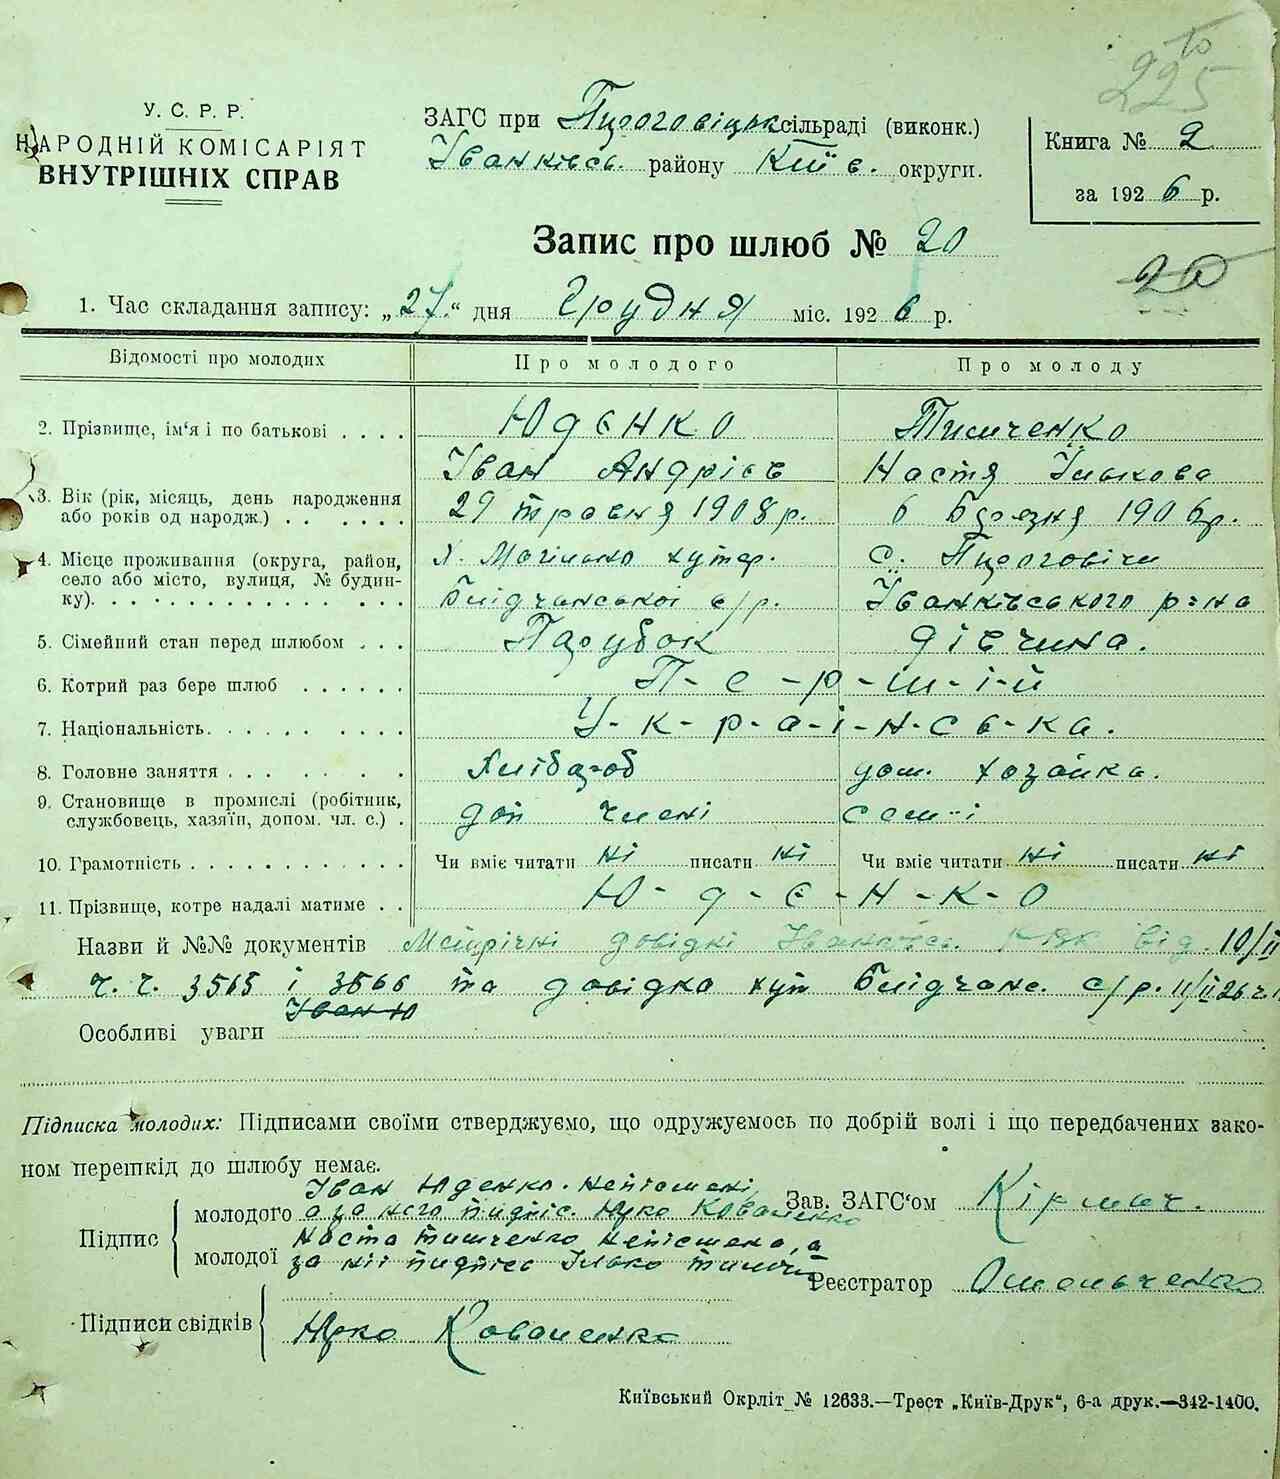 то
225
У. С. Р. Р.
НАРОДНІЙ КОМІСАРІЯТ
ВНУТРІШНІХ СПРАВ
ЗАГС при Пироговіцьк. сільраді (виконк.)
Іванківсь. району Київ. округи.
Книга № 2
за 1926 р.
Запис про шлюб № 20
20
1. Час складання запису: „27“ дня Грудня міс. 1926 р.
Відомості про молодих Про молодого Про молоду
2. Прізвище, ім'я і по батькові . . . . Юденко Тимченко
Іван Андрієв Настя Ількова
3. Вік (рік, місяць, день народження
або років од народж.) . . . . . . 29 травня 1908 р. 6 Березня 1906 р.
4. Місце проживання (округа, район,
село або місто, вулиця, № будин-
ку). . . . . . . . . . . . . . . .
Х. Могільно хутор. с. Пироговичи
Блідчанської с/р. Іванківського р-на
5. Сімейний стан перед шлюбом . . . Парубок дівчина.
6. Котрий раз бере шлюб . . . . . . П-е-р-ш-і-й
7. Національність. . . . . . . . . . У-к-р-а-ї-н-сь-ка.
8. Головне заняття . . . . . . . . Хлібороб дом. хозайка.
9. Становище в промислі (робітник,
службовець, хазяїн, допом. чл. с.) . доп члені сем'ї
10. Грамотність . . . . . . . . . . . . Чи вміє читати ні писати ні Чи вміє читати ні писати ні
11. Прізвище, котре надалі матиме . . Ю-д-е-н-к-о
Назви й №№ документів довідкі Іванківсь. від. 10/ІІ
ч. ч. 3565 і 3566 та довідка хут Блідчанс. с/р. 11/ІІ 26
Особливі уваги
Підписка молодих: Підписами своїми стверджуємо, що одружуємось по добрій волі і що передбачених зако-
ном перешкід до шлюбу немає.
Підпис
молодого Іван Юденко. непісмені,
а за него пидпіс. Юрко Коваленко
молодої Наста тимченко непісмена, а
за нії пидпісь Ілько тимчен
Зав. ЗАГС'ом
Реєстратор Омельченко
Підписи свідків Юрко Коваленко
Київський Окрліт № 12633.—Трест „Київ-Друк“, 6-а друк.—342-1400.